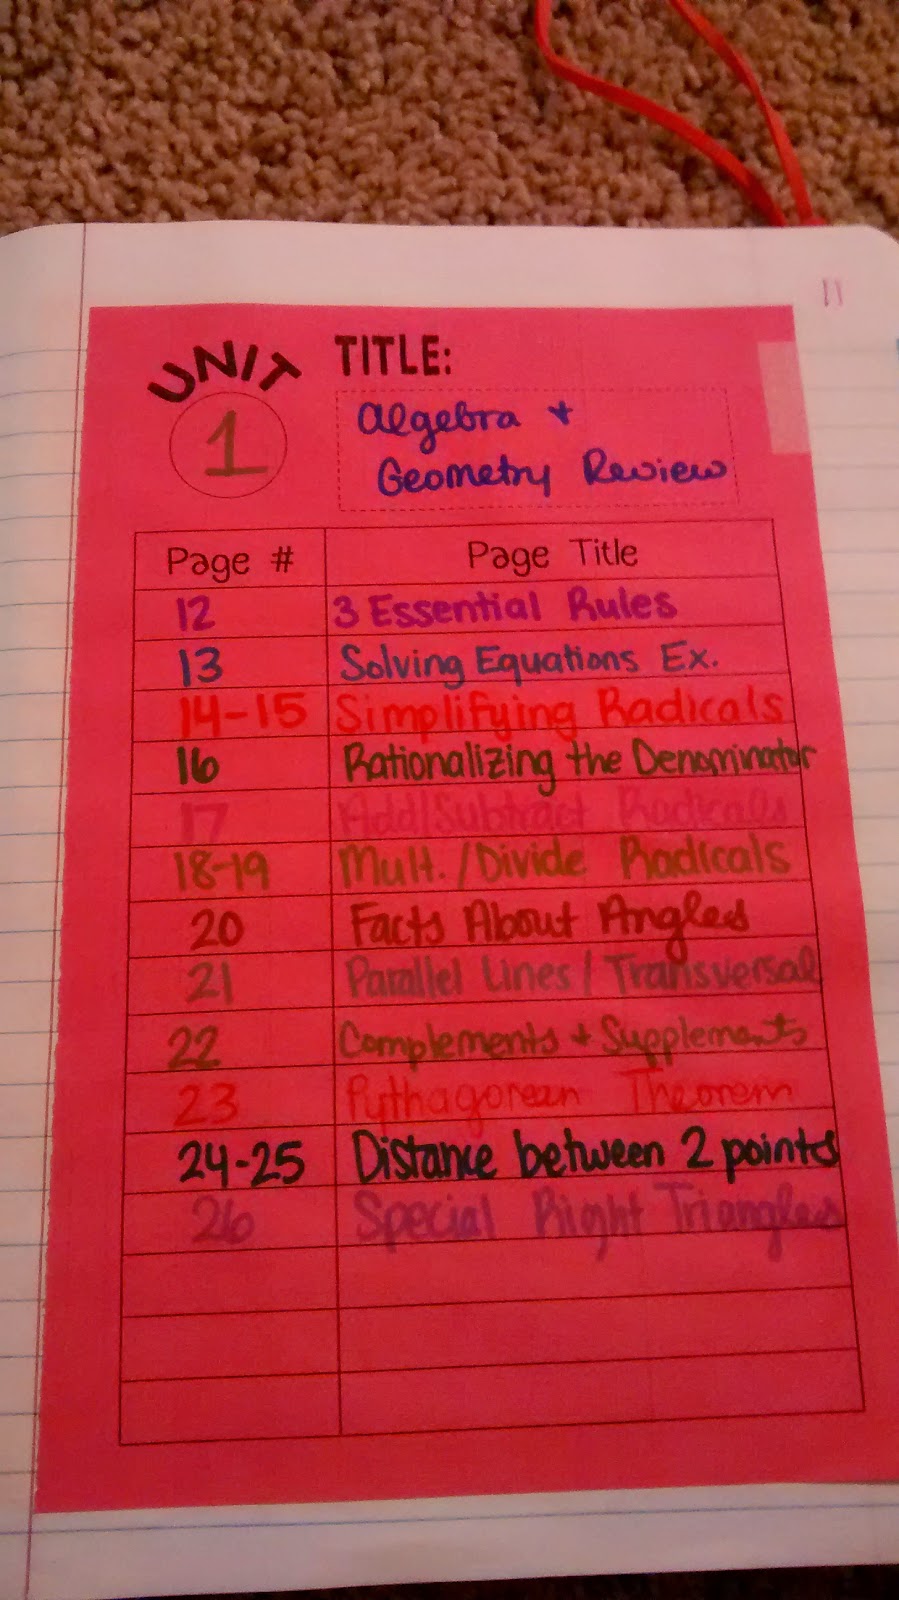 11
UNIT TITLE:
1
Algebra +
Geometry Review
Page # Page Title
12 3 Essential Rules
13 Solving Equations Ex.
14-15 Simplifying Radicals
16 Rationalizing the Denominator
17 Add/Subtract Radicals
18-19 Mult./Divide Radicals
20 Facts About Angles
21 Parallel Lines/Transversal
22 Complements + Supplements
23 Pythagorean Theorem
24-25 Distance between 2 points
26 Special Right Triangles